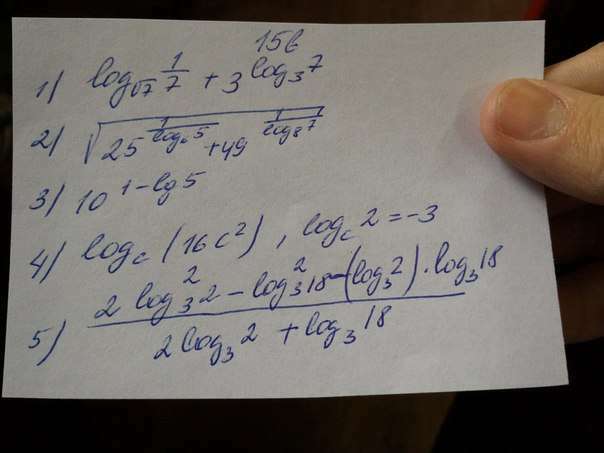 15в
1) log_{√7} 1/7 + 3^{log_3 7}
2) √(25^{1/log_6 5} + 49^{1/log_8 7})
3) 10^{1-lg5}
4) log_c (16c²), log_c 2 = -3
5) (2 log_3² 2 - log_3² 18 - (log_3 2) · log_3 18) / (2 log_3 2 + log_3 18)